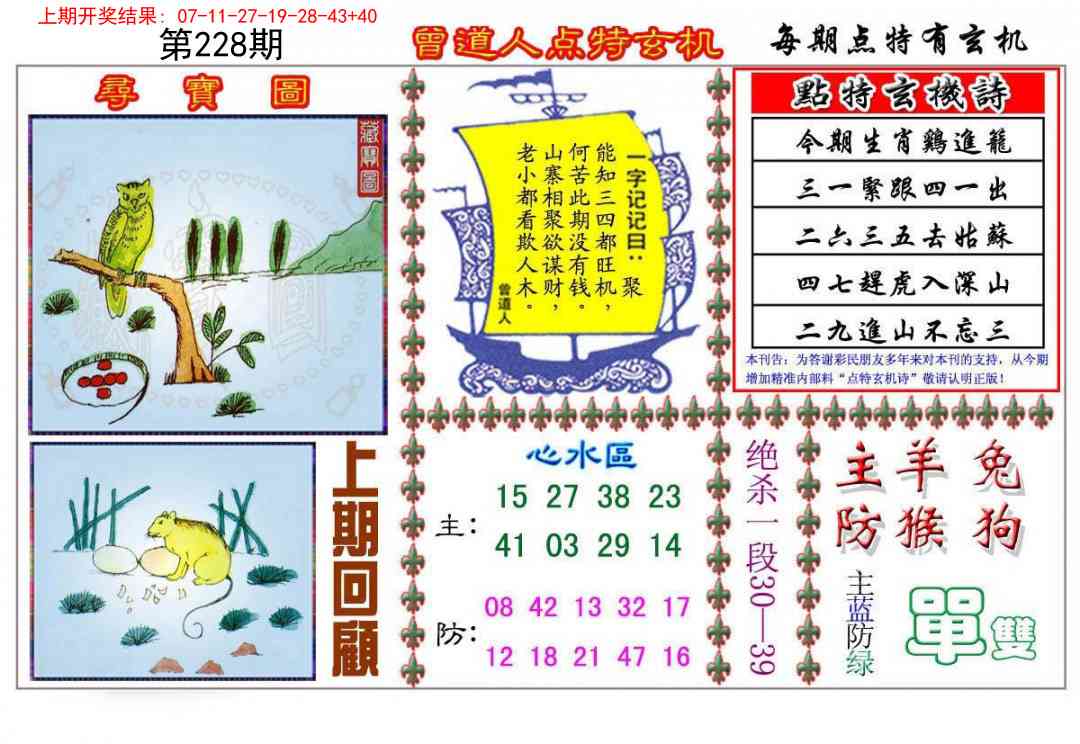 上期开奖结果：07-11-27-19-28-43+40
第228期
曾道人点特玄机
每期点特有玄机
尋寶圖
藏寶圖
一字记记曰：聚
能知三四都旺机，
何苦此期没有钱。
山寨相聚欲谋财，
老小都看欺人木。
曾道人
點特玄機詩
今期生肖鷄進籠
三一緊跟四一出
二六三五去姑蘇
四七趕虎入深山
二九進山不忘三
本刊告：为答谢彩民朋友多年来对本刊的支持，从今期
增加精准内部料“点特玄机诗”敬请认明正版！
上期回顧
心水區
主：
15 27 38 23
41 03 29 14
防：
08 42 13 32 17
12 18 21 47 16
绝杀一段30—39
主羊兔
防猴狗
主蓝防绿
單雙